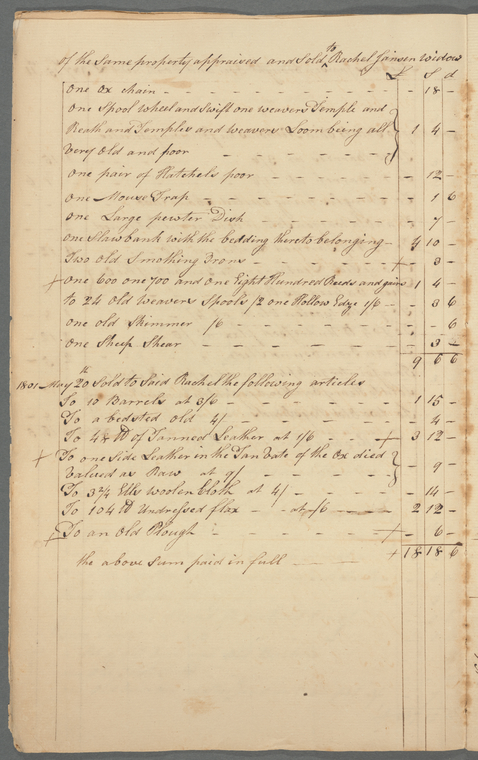 of the same property appraised and Sold to Rachel Jansen Widow
£ S d
One ox chain - 18 -
One Spool Wheel and Swift one weavers Temple and
Reath and Temples and weavers Loom being all 1 4 -
Very old and poor
One pair of Hatchels poor - 12 -
One Mouse Trap - 1 6
One Large pewter Dish - 7 -
one Slawbank with the bedding thereto belonging 4 10 -
Two old Smothing Irons + - 3 -
+ One 600 one 700 and one Eight Hundred Reeds and 1 4 -
to 24 old weavers Spools /2 one Hollow Edge 1/6 - 3 6
one old Skimmer /6 - - 6
One Sheep Shear - 3 -
9 6 6
1801 May 20th Sold to Said Rachel the following articles
To 10 Barrels at 3/6 1 15 -
To a bedsted old 4/ - 4 -
To 48 lb of Tanned Leather at 1/6 + 3 12 -
+ To one Side Leather in the Tan Vate of the Ox died
Valered as Raw at 9/ - 9 -
To 3 3/4 Ells woolen Cloth at 4/ - 14 -
To 104 lb Undressed flax at /6 2 12 -
+ To an Old Plough + - 6 -
the above Sum paid in full + 18 18 6